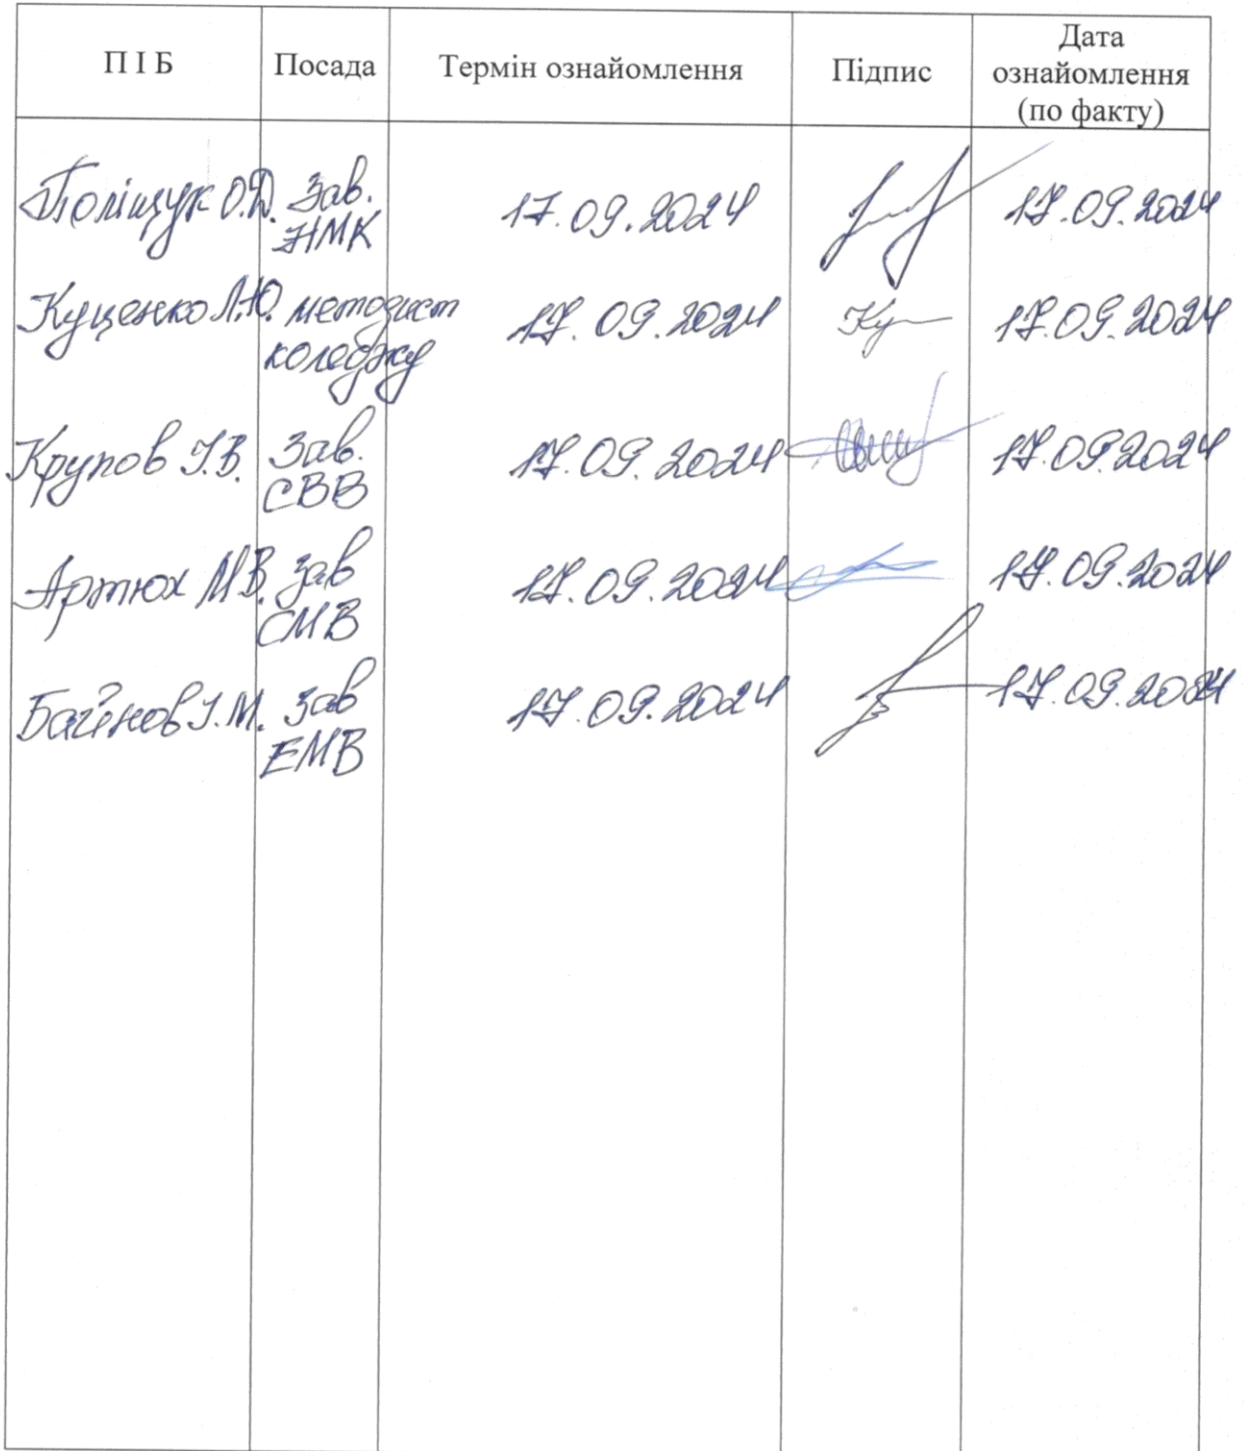 П І Б Посада Термін ознайомлення Підпис Дата ознайомлення (по факту)
Поліщук О.Д. Зав. 17.09.2024 17.09.2024
НМК
Куценко Л.Ю. методист 17.09.2024 Ку 17.09.2024
коледжу
Крупов І.В. Зав. 17.09.2024 17.09.2024
СВВ
Артюх М.В. зав 17.09.2024 17.09.2024
СМВ
Баінов І.М. зав 17.09.2024 17.09.2024
ЕМВ